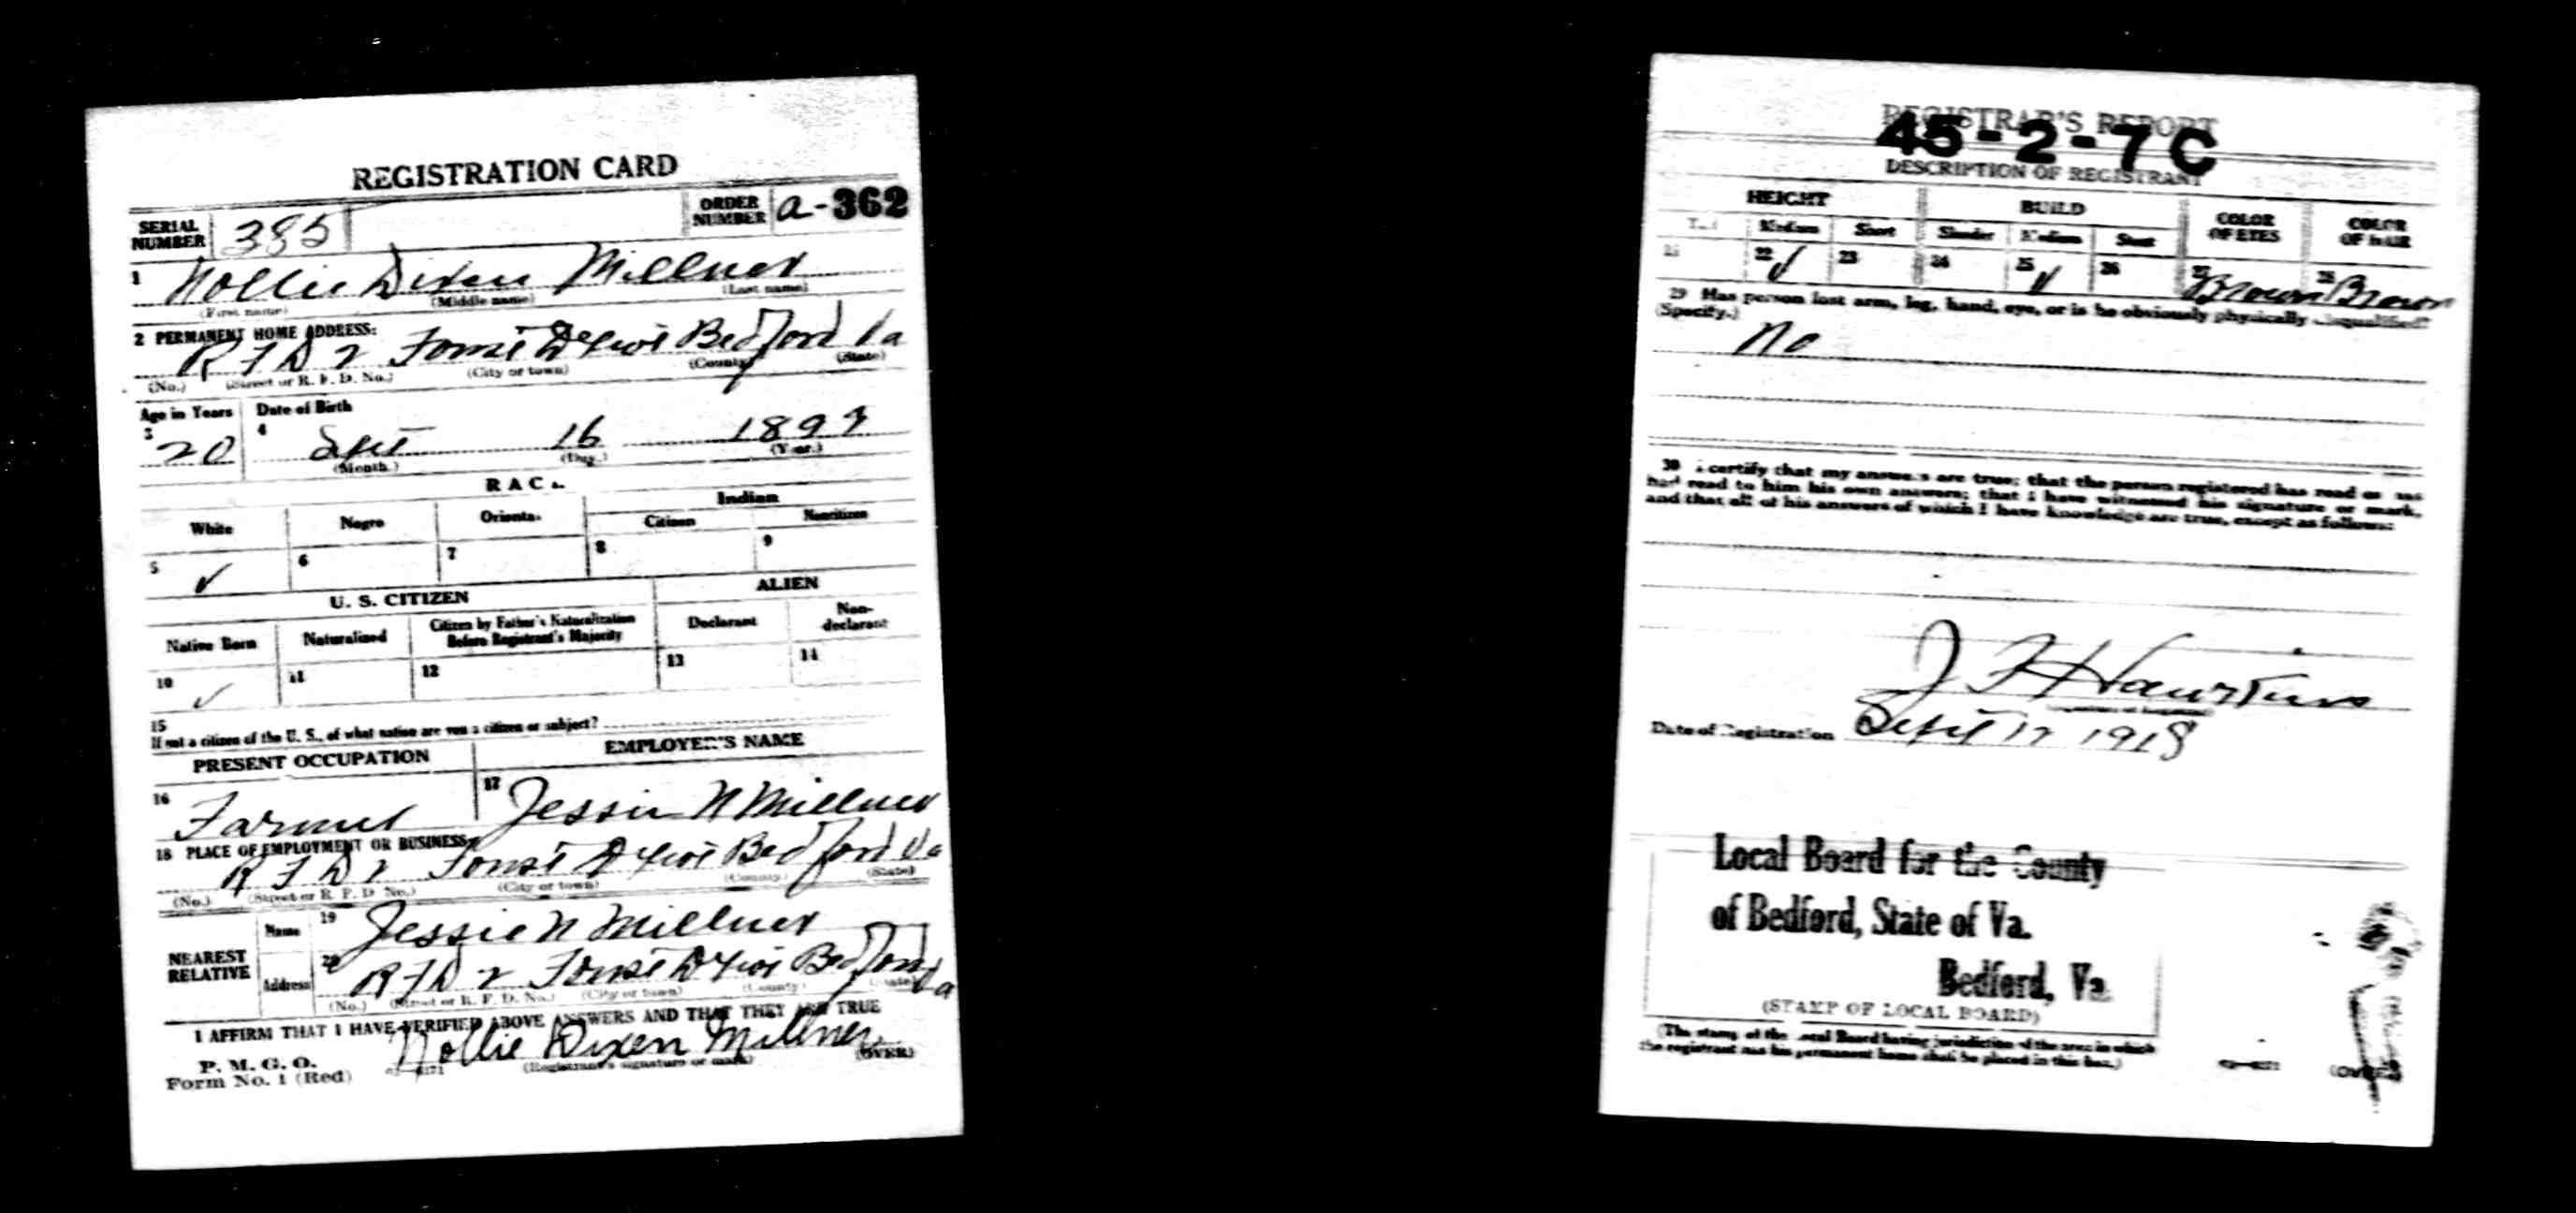 REGISTRATION CARD
SERIAL NUMBER 385 ORDER NUMBER a-362
1 Nollie Dixen Millner
(First name) (Middle name) (Last name)
2 PERMANENT HOME ADDRESS:
R F D 2 Bedford Va
(No.) (Street or R. F. D. No.) (City or town) (County) (State)
Age in Years Date of Birth
3 20 4 Sept 16
(Month.) (Day.) (Year.)
RACE
White Negro Oriental Indian
Citizen Noncitizen
5 ✓ 6 7 8 9
U. S. CITIZEN ALIEN
Native Born Naturalized Citizen by Father's Naturalization Before Registrant's Majority Declarant Non-declarant
10 ✓ 11 12 13 14
15
If not a citizen of the U. S., of what nation are you a citizen or subject?
PRESENT OCCUPATION EMPLOYER'S NAME
16 Farmer 17 Jessie N Millner
18 PLACE OF EMPLOYMENT OR BUSINESS:
R F D 2 Bedford Va
(No.) (Street or R. F. D. No.) (City or town) (County) (State)
NEAREST RELATIVE
Name 19 Jessie N Millner
Address 20 R F D 2 Bedford Va
(No.) (Street or R. F. D. No.) (City or town) (County) (State)
I AFFIRM THAT I HAVE VERIFIED ABOVE ANSWERS AND THAT THEY ARE TRUE
P. M. G. O.
Form No. 1 (Red) Nollie Dixen Millner
(Registrant's signature or mark) (OVER)
REGISTRAR'S REPORT
45-2-7 C
DESCRIPTION OF REGISTRANT
HEIGHT BUILD COLOR OF EYES COLOR OF HAIR
Tall Medium Short Slender Medium Stout
21 22 ✓ 23 24 25 ✓ 26 27 Brown 28 Brown
29 Has person lost arm, leg, hand, eye, or is he obviously physically disqualified?
(Specify.)
No
30 I certify that my answers are true; that the person registered has read or has
had read to him his own answers; that I have witnessed his signature or mark,
and that all of his answers of which I have knowledge are true, except as follows:
J F Hawkins
Date of Registration Sept 12 1918
Local Board for the County
of Bedford, State of Va.
Bedford, Va.
(STAMP OF LOCAL BOARD)
(The stamp of the Local Board having jurisdiction of the area in which
the registrant has his permanent home shall be placed in this box.)
(OVER)